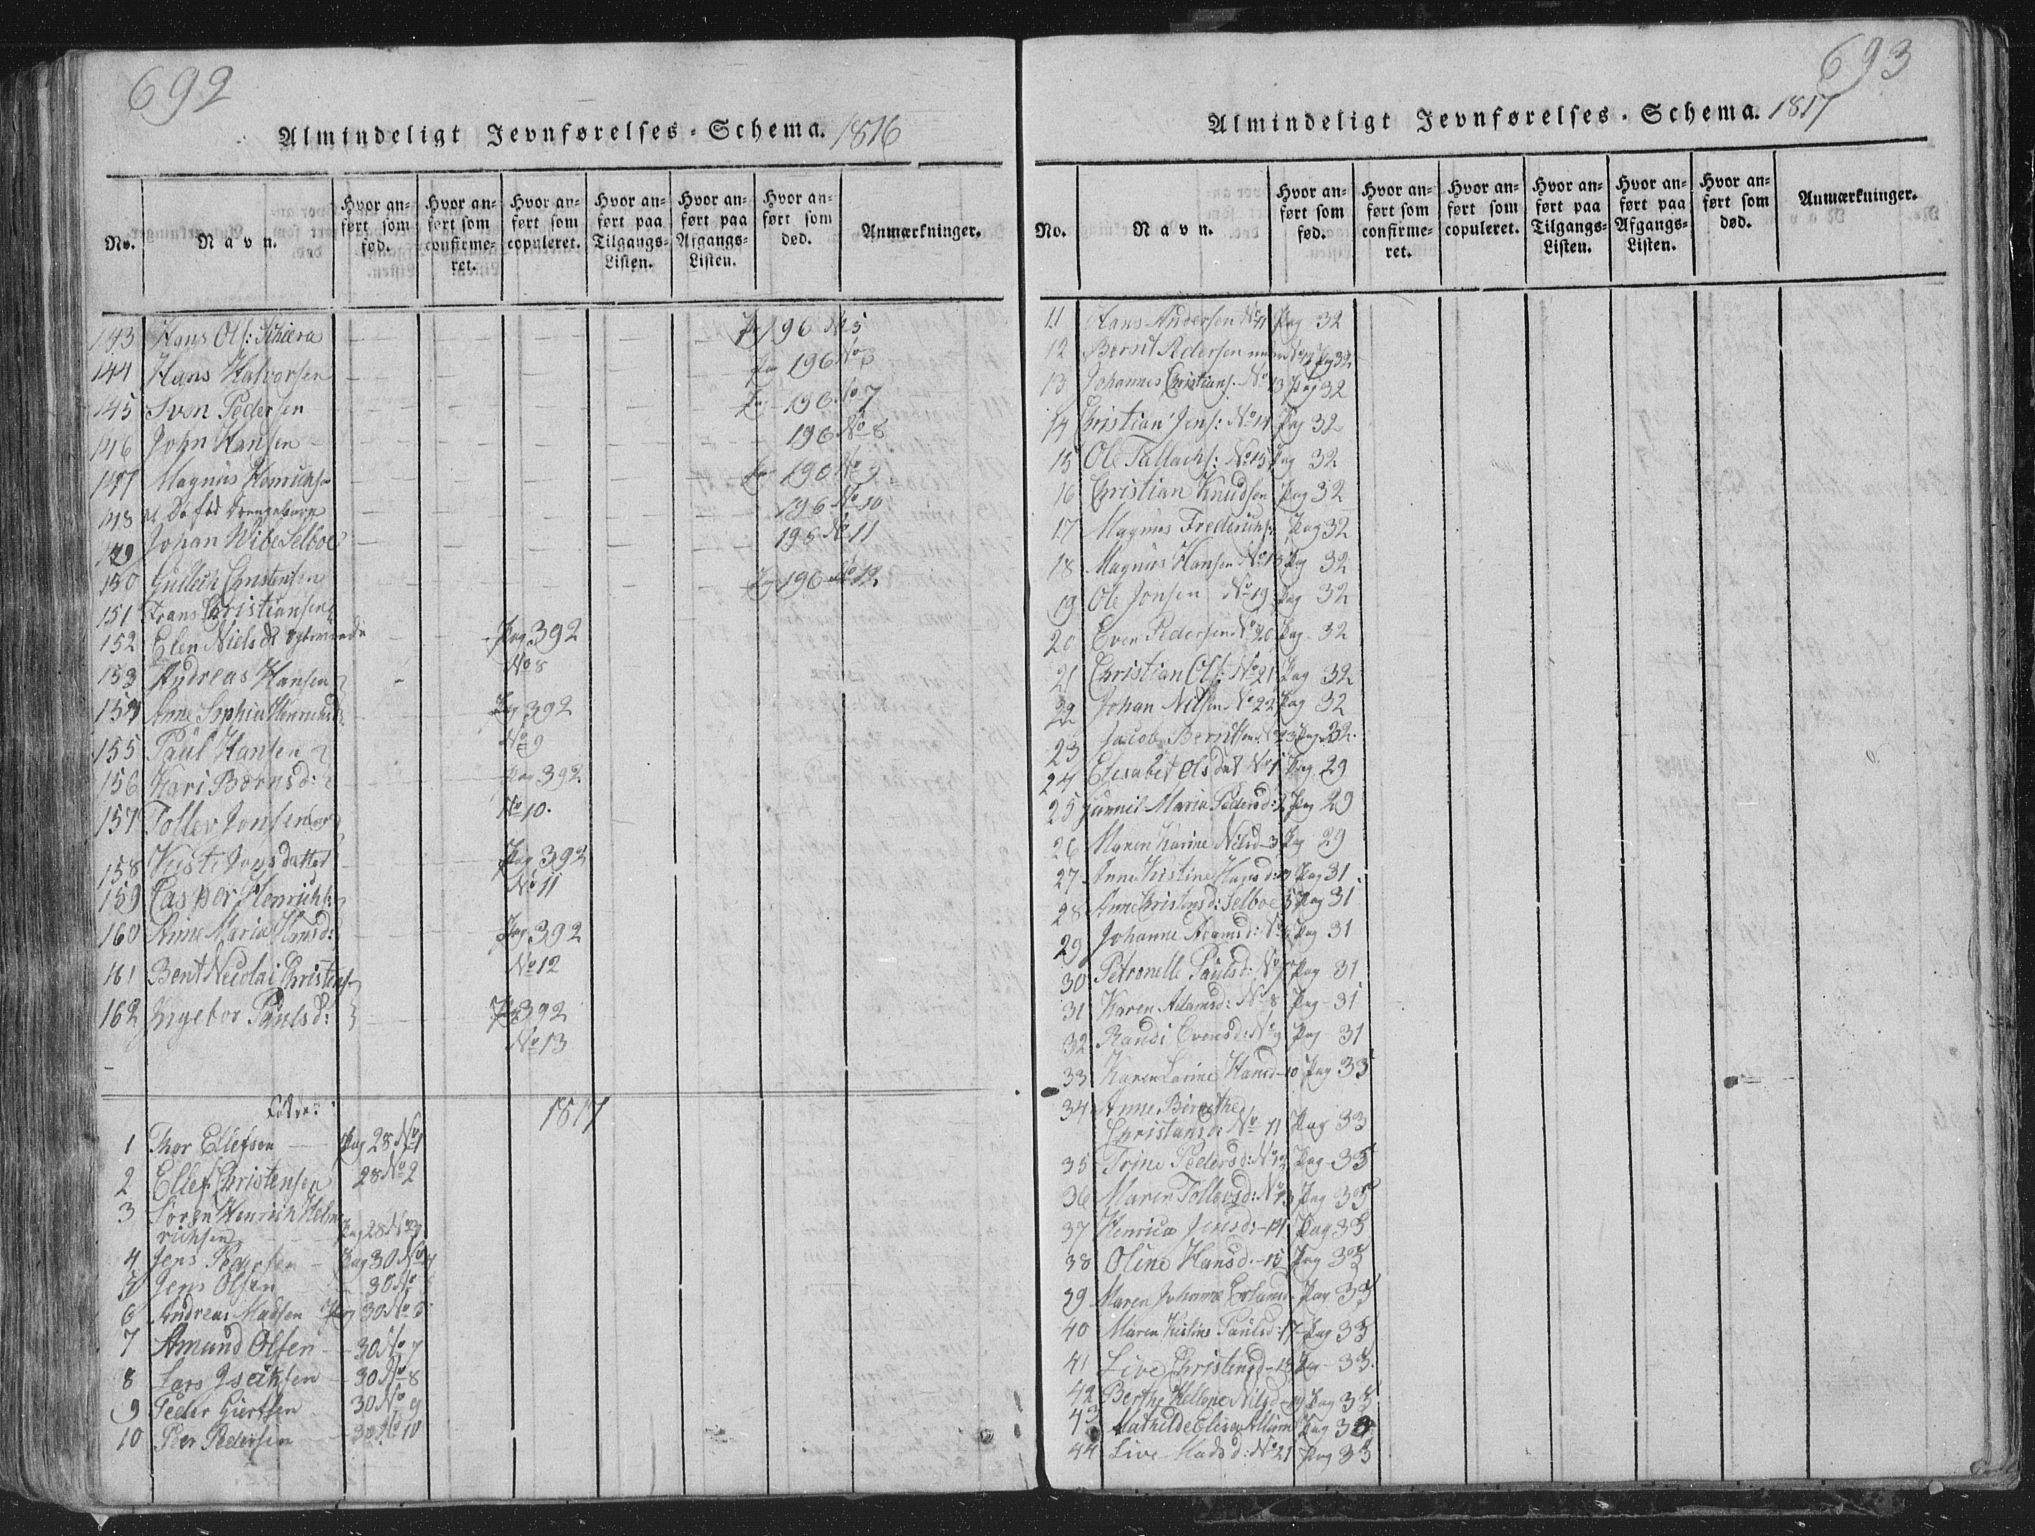 692
Almindeligt Jevnførelses-Schema. 1816
No.
Navn.
Hvor anført som fød.
Hvor anført som confirmeret.
Hvor anført som copuleret.
Hvor anført paa Tilgangs-Listen.
Hvor anført paa Afgangs-Listen.
Hvor anført som død.
Anmærkninger.
143 Hans Ols: Pag 196 No 5
144 Hans Halvorsen Pag 196 No 6
145 Sven Pedersen 196 No 7
146 John Hansen 196 No 8
147 Magnus Henrichs No 9
148 196 No 10
149 Johan Wibe Selboe 196 No 11
150 Gullech Christensen Pag 196 No 12
151 Frans Christiansen
152 Elen Nielsd Pag 392
153 Andreas Hansen No 8
154 Anne Sophia Pag 392
155 Paul Hansen No 9
156 Kari Børnsd: Pag 392
157 Tollev Jonsen No 10.
158 Kisti Jonsdatter Pag 392
159 Casper Henrichs: No 11
160 Anne Maria Hansd: Pag 392
161 Bent Nicolai Christens No 12
162 Ingebor Paulsd: Pag 392
No 13
1817
1 Thor Ellefsen Pag 28 No 1
2 Ellef Christensen 28 No 2
3 Søren Henrich Helm
richsen Pag 28 No 3
4 Jens Pedersen Pag 30 No 4
5 Jens Olsen 30 No
6 Andreas Madsen Pag 30 No
7 Amund Olsen 30 No 7
8 Lars Isachsen 30 No 8
9 Peder Giertsen 30 No 9
10 Per Pedersen 30 No 10
693
Almindeligt Jevnførelses-Schema. 1817
No.
Navn.
Hvor anført som fød.
Hvor anført som confirmeret.
Hvor anført som copuleret.
Hvor anført paa Tilgangs-Listen.
Hvor anført paa Afgangs-Listen.
Hvor anført som død.
Anmærkninger.
11 Hans Andersen No 11 Pag 32
12 Bernt Pag 32
13 Johannes Christians. No 13 Pag 32
14 Christian Jens: No 14 Pag 32
15 Ole Tallachs: No 15 Pag 32
16 Christian Knudsen Pag 32
17 Magnus Frederichs: Pag 32
18 Magnus Hansen No 18 Pag 32
19 Ole Jonsen No 19 Pag 32
20 Even Pedersen No 20 Pag 32
21 Christian Ols: No 21 Pag 32
22 Johan Nilsen No 22 Pag 32
23 Jacob Berntsen 23 Pag 32
24 Elisabet Olsdat No 1 Pag 29
25 Gunnil Maria Pedersd: 2 Pag 29
26 Maren Karine Nilsd 3 Pag 29
27 Anne Kistine Pag 31
28 Anne Christensd: Selboe 5 Pag 31
29 Johanne Adamsd: No 6 Pag 31
30 Petronelle Paulsd: No 7 Pag 31
31 Karen Adamsd: No 8 Pag 31
32 Randi Evensd: No 9 Pag 31
33 Karen Larine Hansd 10 Pag 33
34 Anne Birgethe
Christansd: No 11 Pag 33
35 Trine Pedersd: No 12 Pag 33
36 Maren Tollevsd: No 13 Pag 33
37 Henrica Jensd: 14 Pag 33
38 Oline Hansd. 15 Pag 33
39 Maren Johanne Erlansd Pag 33
40 Maren Kistine Paulsd: 17 Pag 33
41 Live Christensd 18 Pag 33
42 Berthe Hellene Nilsd 19 Pag 33
43 Mathilde Elisa Pag 33
44 Live Madsd: No 21 Pag 33